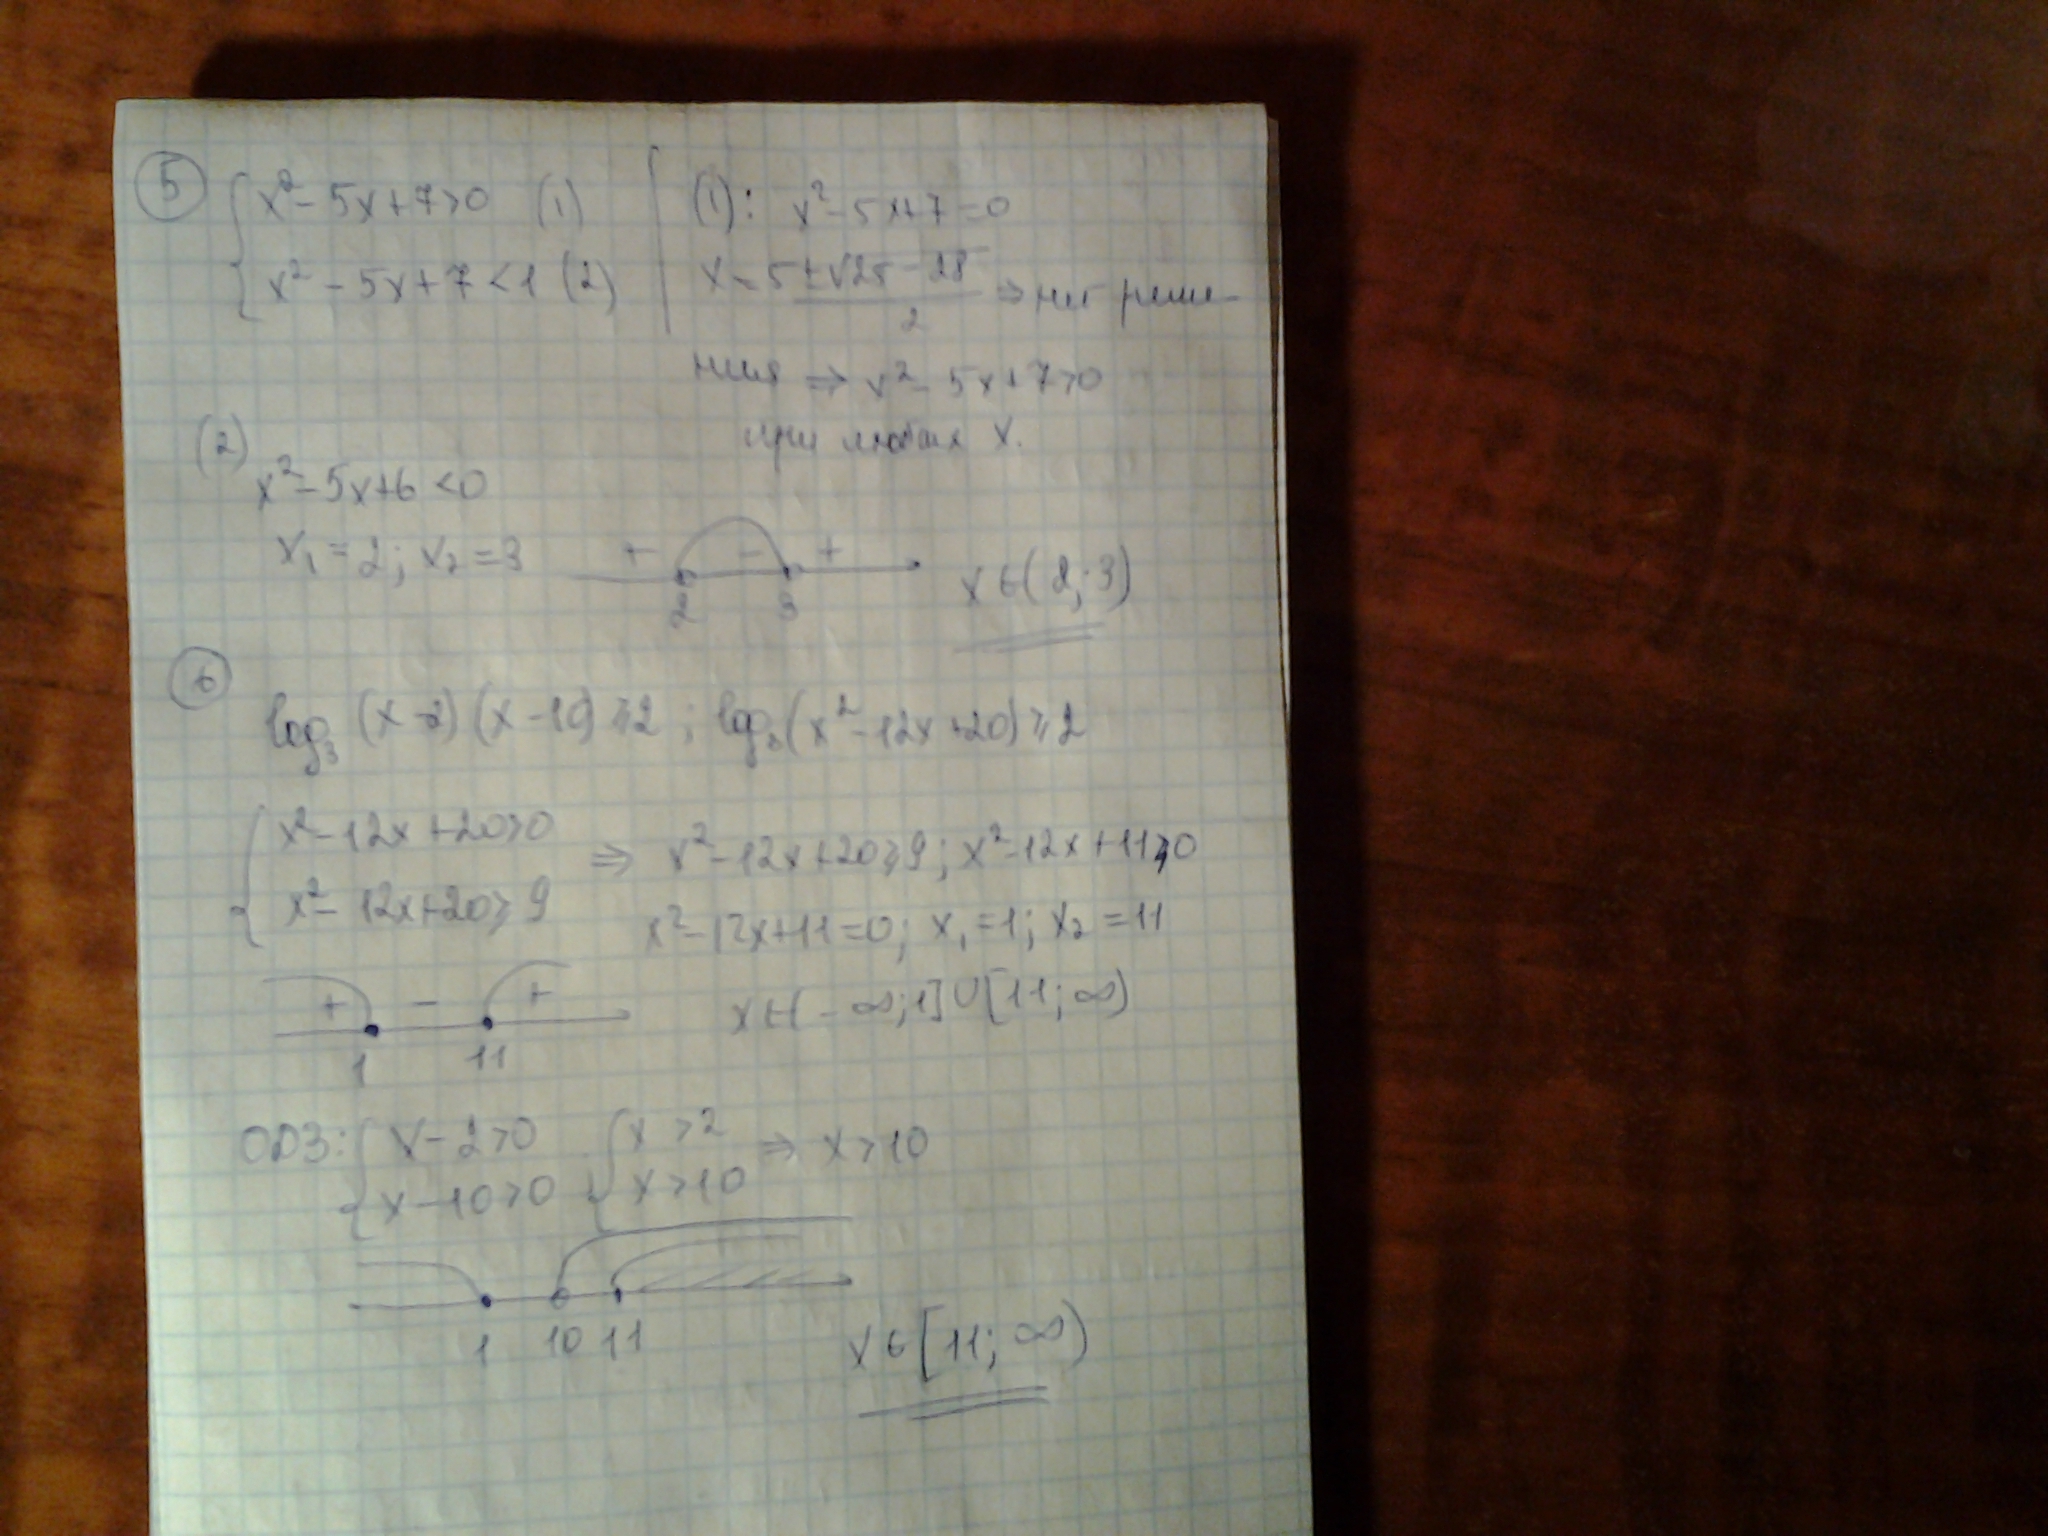 5 { x² - 5x + 7 > 0 (1)
x² - 5x + 7 < 1 (2)
(1): x² - 5x + 7 = 0
x = (5 ± √25 - 28) / 2 ⇒ нет реше-
ния ⇒ x² - 5x + 7 > 0
при любых x.
(2)
x² - 5x + 6 < 0
x₁ = 2; x₂ = 3
+ - +
2 3
x ∈ (2; 3)
6
log₃ (x - 2) (x - 10) ≥ 2 ; log₃ (x² - 12x + 20) ≥ 2
{ x² - 12x + 20 > 0
x² - 12x + 20 ≥ 9
⇒ x² - 12x + 20 ≥ 9; x² - 12x + 11 ≥ 0
x² - 12x + 11 = 0; x₁ = 1; x₂ = 11
+ - +
1 11
x ∈ (-∞; 1] ∪ [11; ∞)
ОДЗ: { x - 2 > 0 { x > 2 ⇒ x > 10
x - 10 > 0 x > 10
1 10 11
x ∈ [11; ∞)